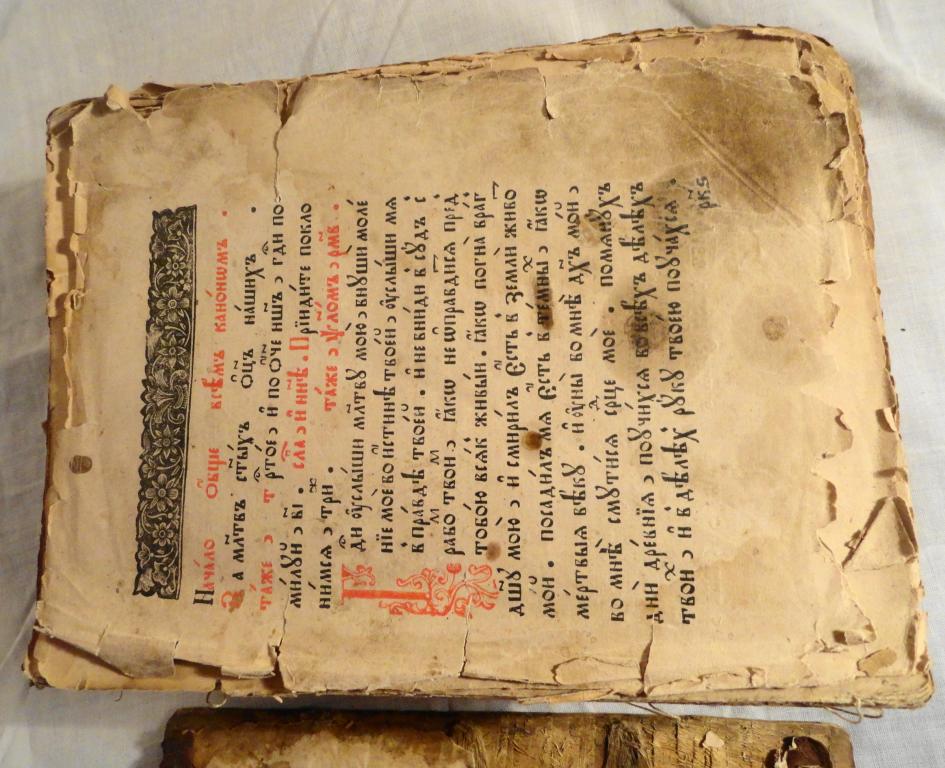 Нача́ло Ѻ҆́бщее всѣ̑мъ кано́нѡмъ .
За мл҃твъ ст҃ы́хъ ѻ҆ц҃ъ на́шихъ .
та́же , трⷭ҇то́е , и҆ по Ѻ҆́ч҃е на́шъ , гдⷭ҇и по
ми́лꙋй , в҃і . сла́ва , и҆ нн҃ѣ . Прїиди́те покло
ни́мсѧ , три́ . та́же , ѱало́мъ , рм҃в .
Гдⷭ҇и ᲂу҆слы́ши мл҃твꙋ мою̀ , внꙋшѝ моле́
нїе моѐ во и҆́стинѣ твое́й , ᲂу҆слы́ши мѧ
в пра́вдѣ твое́й . и҆ не вни́ди в сꙋ́дъ с
рабо́мъ твои́мъ , ꙗ҆́кѡ не ѡ҆правди́тсѧ пред̾
тобо́ю всѧ́къ живы́й . ꙗ҆́кѡ погна̀ вра́гъ
дш҃ꙋ мою̀ , и҆ смири́лъ є҆́сть в̾ зе́млю живо́тъ
мо́й . посади́лъ мѧ є҆́сть в̾ те́мныхъ , ꙗ҆́кѡ
ме́ртвыѧ вѣ́кꙋ . и҆ ᲂу҆ны̀ во мнѣ̀ дх҃ъ мо́й ,
во мнѣ̀ смѧти́сѧ срⷣце моѐ . помѧнꙋ́хъ
дни̑ дре́внїѧ , поꙋчи́хсѧ во всѣ́хъ дѣ́лѣхъ
твои́хъ , и҆ в̾ дѣ́лѣхъ рꙋкꙋ̀ твоє́ю поꙋча́хсѧ .
рк҃ѕ